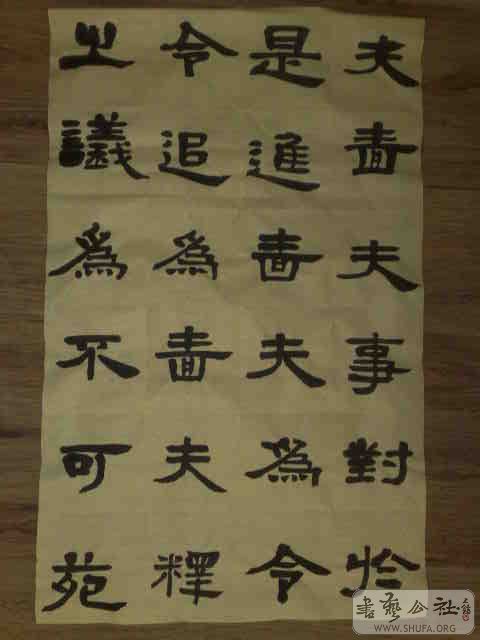 夫嗇夫事對於
是進嗇夫為令
令退為嗇夫釋
之議為不可苑
書藝公社
WWW.SHUFA.ORG